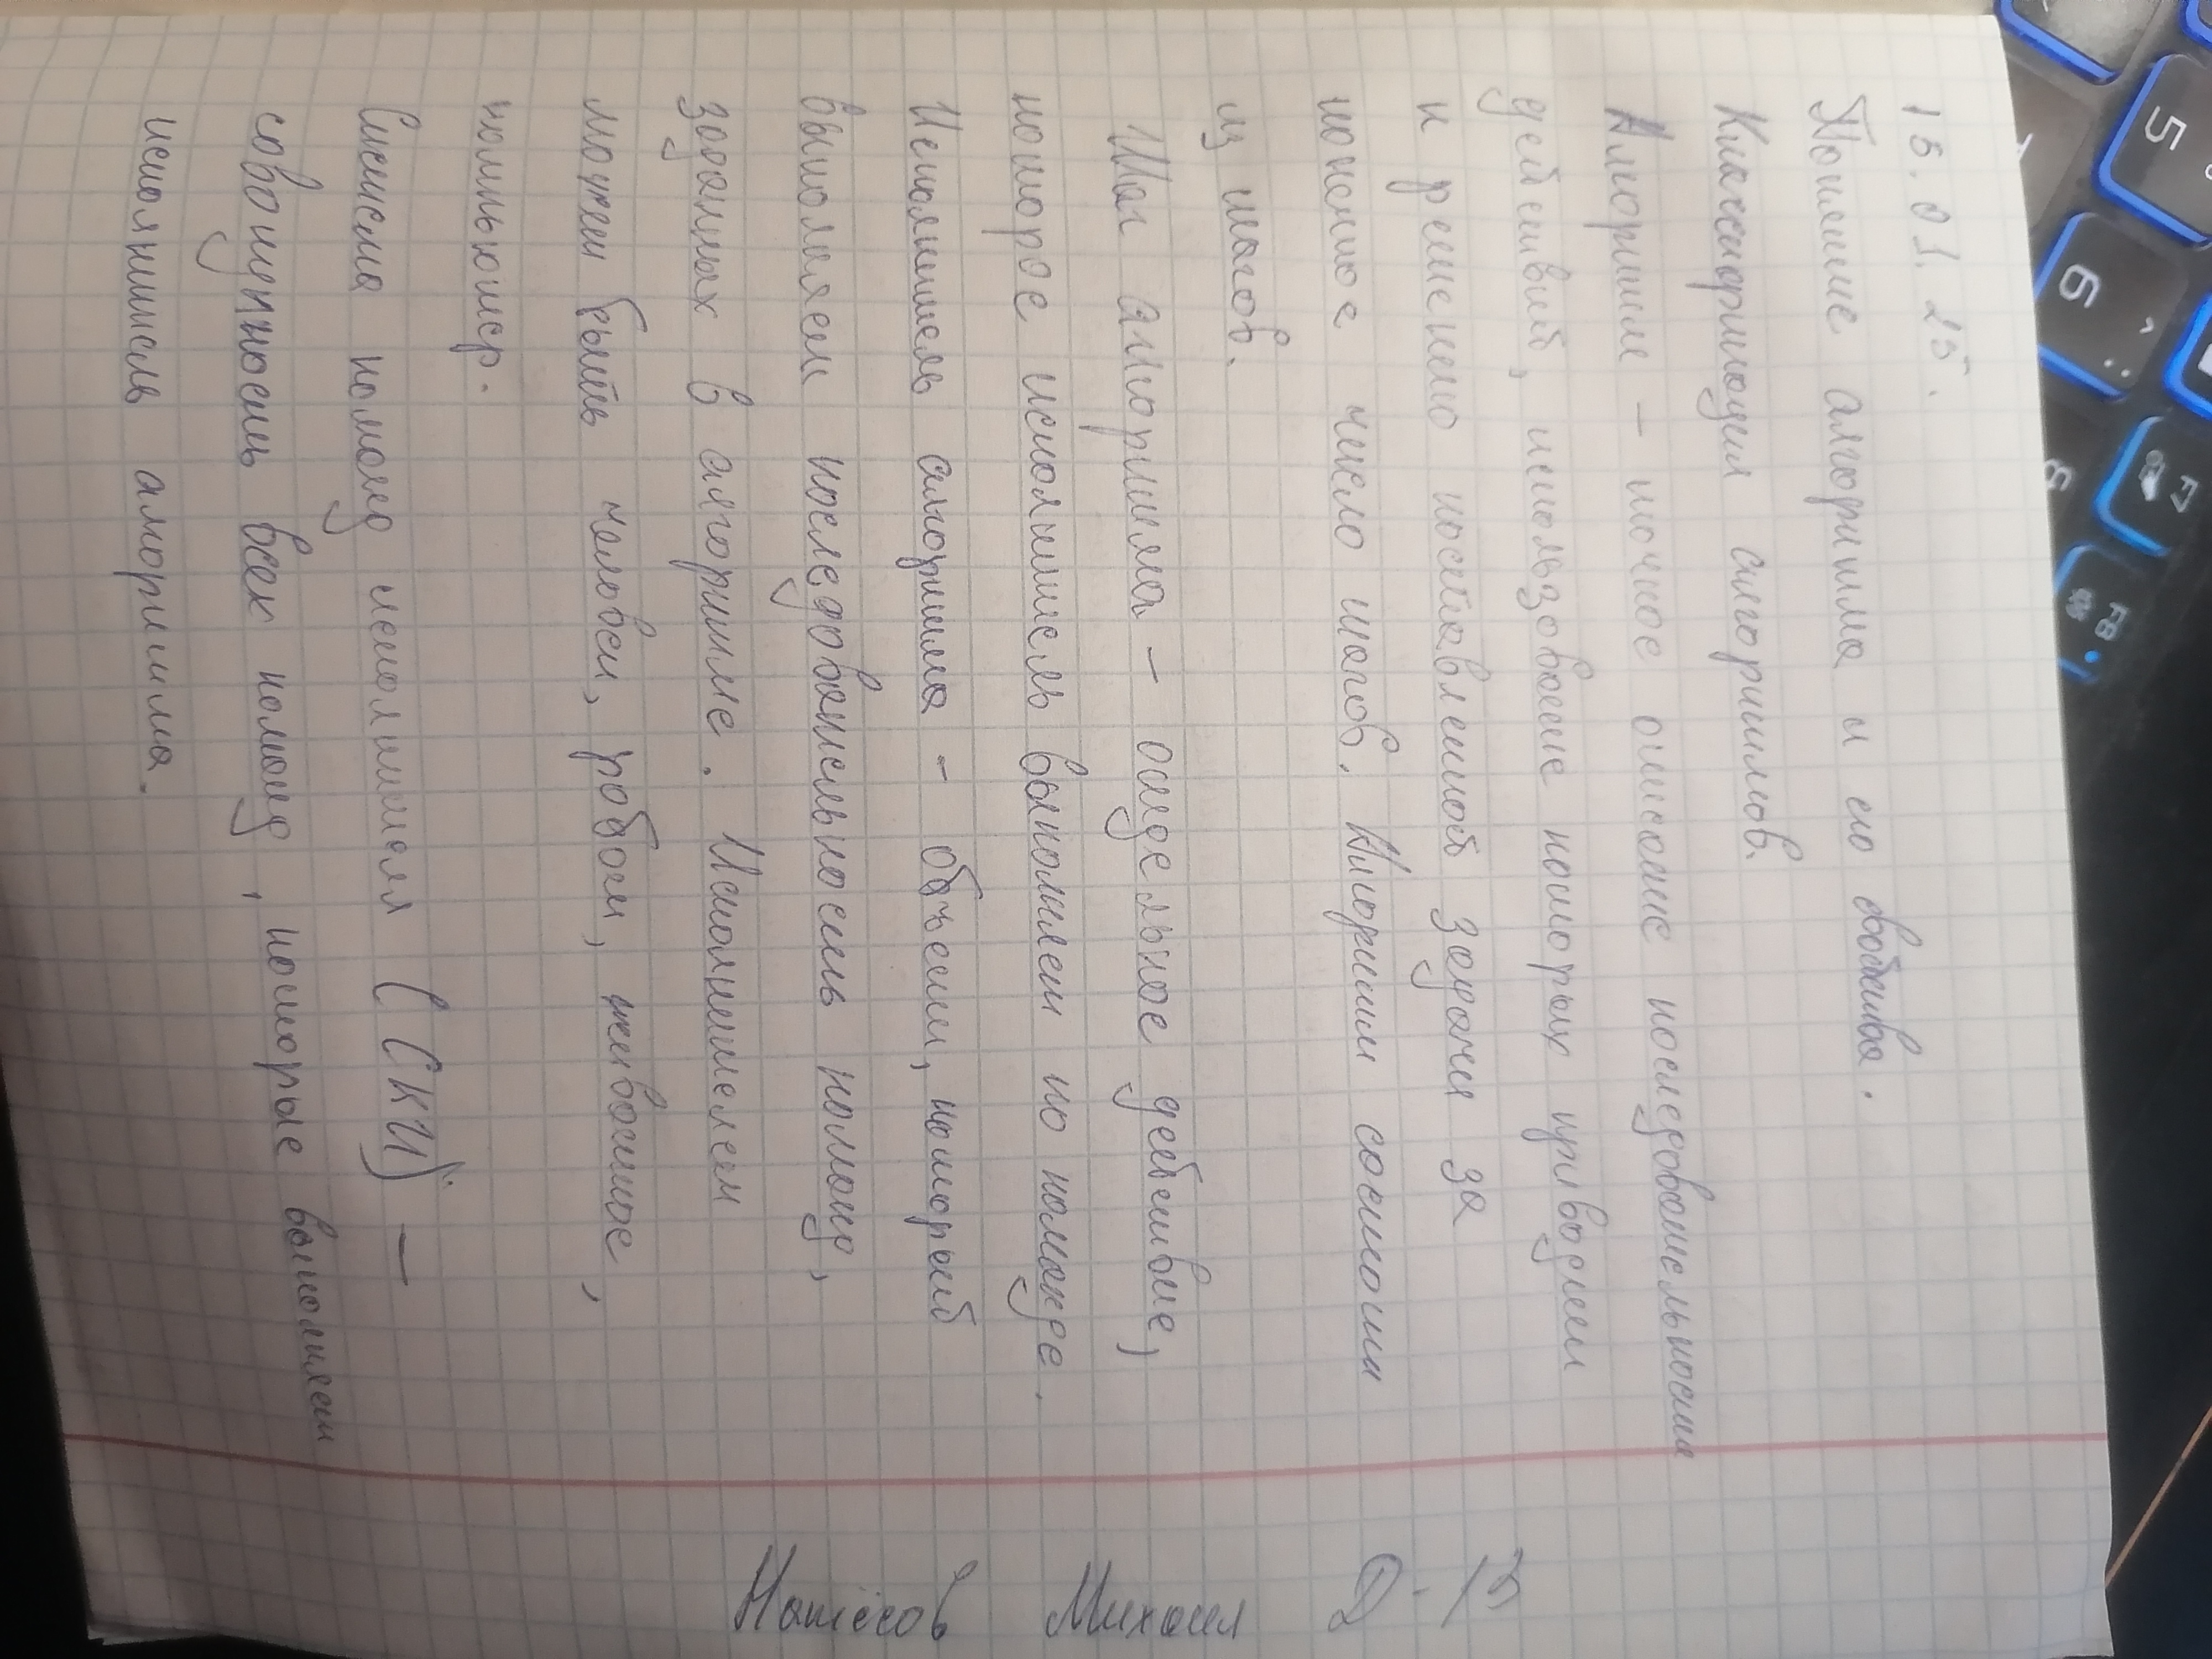 15.01.25.
Понятие алгоритма и его свойства.
Классификация алгоритмов.
Алгоритм - точное описание последовательности
действий, использование которых приводит
к решению поставленной задачи за
конечное число шагов. Алгоритм состоит
из шагов.
Шаг алгоритма - отдельное действие,
которое исполнитель выполняет по команде.
Исполнитель алгоритма - объект, который
выполняет последовательность команд,
заданных в алгоритме. Исполнителем
может быть человек, робот, животное,
компьютер.
Система команд исполнителя (СКИ) -
совокупность всех команд, которые выполняет
исполнитель алгоритма.
Михаил Д-13
5
6
F7
F8